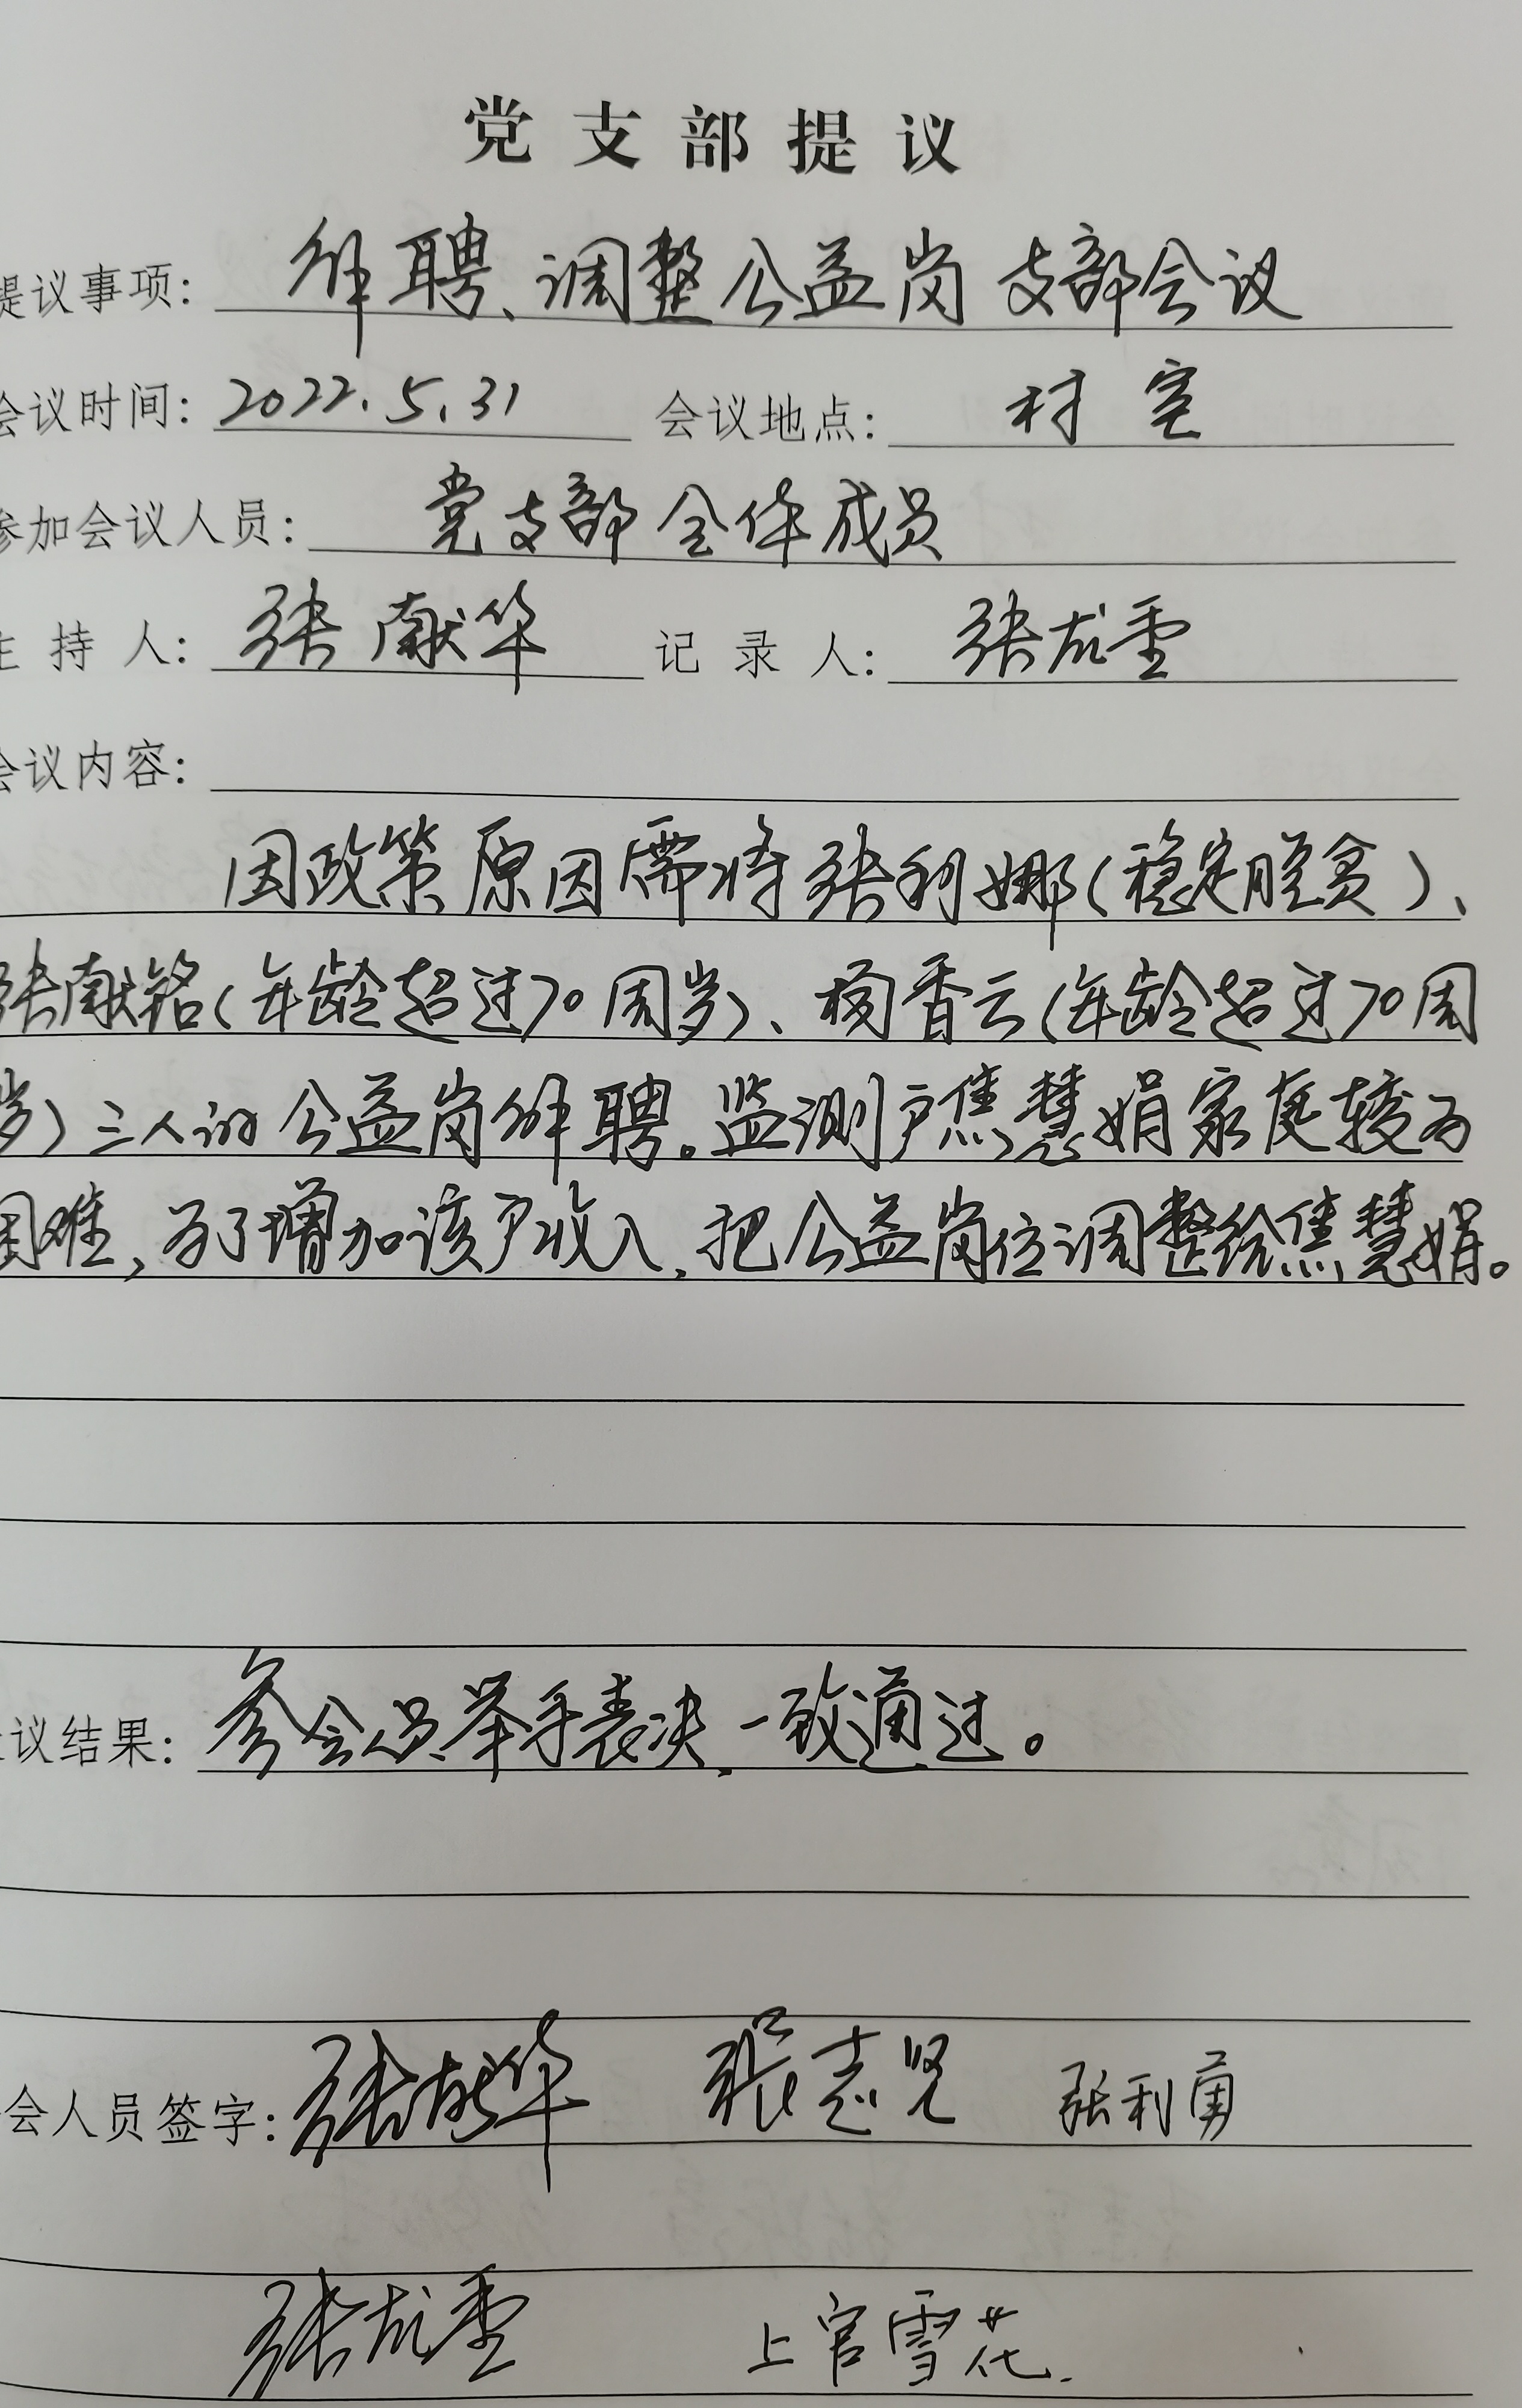 党支部提议
提议事项: 解聘、调整公益岗支部会议
会议时间: 2022.5.31 会议地点: 村室
参加会议人员: 党支部全体成员
主持人: 张献华 记录人: 张龙垂
会议内容:
因政策原因需将张利娜(稳定脱贫)、
张献铭(年龄超过70周岁)、杨香云(年龄超过70周
岁)三人的公益岗解聘。监测户焦慧娟家庭较为
困难,为了增加该户收入,把公益岗位调整给焦慧娟。
议结果: 参会人员举手表决,一致通过。
会人员签字: 张献华 张志贤 张利勇
张龙垂 上官雪花.